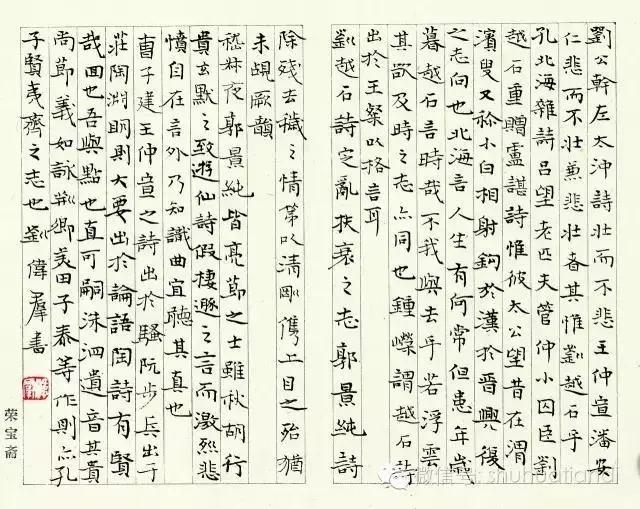 劉公幹左太沖詩壯而不悲王仲宣潘安
仁悲而不壯兼悲壯者其惟劉越石乎
孔北海雜詩呂望老匹夫管仲小囚臣劉
越石重贈盧諶詩惟彼太公望昔在渭
濱叟又称小白相射鈎於漢於晉興復
之志同也北海言人生有何常但患年歲
暮越石言時哉不我與去乎若浮雲
其欲及時之志亦同也鍾嶸謂越石詩
出於王粲以格言耳
劉越石詩定亂扶衰之志郭景純詩
除殘去穢之情第以清剛儁上目之殆猶
未覘厥韻
嵇叔夜郭景純皆亮節之士雖秋胡行
貴玄默之致遊仙詩假棲遯之言而激烈悲
憤自在言外乃知識曲宜聽其真也
曹子建王仲宣之詩出於騷阮步兵出于
莊陶淵明則大要出於論語陶詩有賢
哉回也吾與點也直可嗣洙泗遺音其貴
尚節義如詠荊卿美田子泰等作則亦孔
子賢夷齊之志也劉偉羣書
荣宝斋
微信号: shuhuatiandi